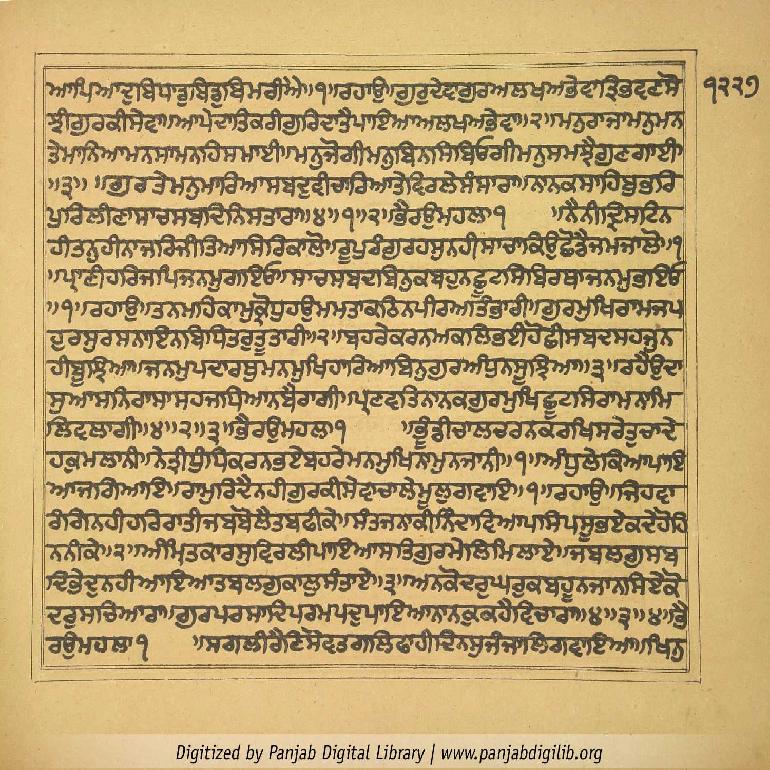 ਆਪਿਆਦੁਬਿਧਾਡੁਬਿਡੁਬਿਮਰੀਐ॥੧॥ਰਹਾਉ॥ਗੁਰੁਦੇਵਗੁਰਅਲਖਅਭੇਵਾਤ੍ਰਿਭਵਣਸੋ ੧੨੨੭
ਝੀਗੁਰਕੀਸੇਵਾ॥ਆਪੇਦਾਤਿਕਰੀਗੁਰਿਦਾਤੈਪਾਇਆਅਲਖਅਭੇਵਾ॥੨॥ਮਨੁਰਾਜਾਮਨੁਮਨ
ਤੇਮਾਨਿਆਮਨਸਾਮਨਹਿਸਮਾਈ॥ਮਨੁਜੋਗੀਮਨੁਬਿਨਸਿਬਿਓਗੀਮਨੁਸਮਝੈਗੁਣਗਾਈ
॥੩॥ ॥ਗੁਰਤੇਮਨੁਮਾਰਿਆਸਬਦੁਵੀਚਾਰਿਆਤੇਵਿਰਲੇਸੰਸਾਰਾ॥ਨਾਨਕਸਾਹਿਬੁਭਰਿ
ਪੁਰਿਲੀਣਾਸਾਚਸਬਦਿਨਿਸਤਾਰਾ॥੪॥੧॥੨॥ਭੈਰਉਮਹਲਾ੧ ॥ਨੈਨੀਦ੍ਰਿਸਟਿਨ
ਹੀਤਨੁਹੀਨਾਜਰਿਜੀਤਿਆਸਿਰਿਕਾਲੋ॥ਰੂਪੁਰੰਗੁਰਹਸੁਨਹੀਸਾਚਾਕਿਉਛੋਡੈਜਮਜਾਲੋ॥੧
॥ਪ੍ਰਾਣੀਹਰਿਜਪਿਜਨਮੁਗਇਓ॥ਸਾਚਸਬਦਬਿਨੁਕਬਹੁਨਛੂਟਸਿਬਿਰਥਾਜਨਮੁਭਇਓ
॥੧॥ਰਹਾਉ॥ਤਨਮਹਿਕਾਮੁਕ੍ਰੋਧੁਹਉਮਮਤਾਕਠਿਨਪੀਰਅਤਿਭਾਰੀ॥ਗੁਰਮੁਖਿਰਾਮਜਪ
ਹੁਰਸੁਰਸਨਾਇਨਬਿਧਿਤਰੁਤੂਤਾਰੀ॥੨॥ਬਹਰੇਕਰਨਅਕਲਿਭਈਹੋਛੀਸਬਦਸਹਜੁਨ
ਹੀਬੂਝਿਆ॥ਜਨਮੁਪਦਾਰਥੁਮਨਮੁਖਿਹਾਰਿਆਬਿਨੁਗੁਰਅੰਧੁਨਸੂਝਿਆ॥੩॥ਰਹੈਉਦਾ
ਸੁਆਸਨਿਰਾਸਾਸਹਜਧਿਆਨਬੈਰਾਗੀ॥ਪ੍ਰਣਵਤਿਨਾਨਕਗੁਰਮੁਖਿਛੂਟਸਿਰਾਮਨਾਮਿ
ਲਿਵਲਾਗੀ॥੪॥੨॥੩॥ਭੈਰਉਮਹਲਾ੧ ॥ਭੂੰਡੀਚਾਲਚਰਨਕਰਖਿਸਰੇਤੁਚਾਦੇ
ਹਕੁਮਲਾਨੀ॥ਨੇਤ੍ਰੀਧੁੰਧਿਕਰਨਭਏਬਹਰੇਮਨਮੁਖਿਨਾਮੁਨਜਾਨੀ॥੧॥ਅੰਧੁਲੇਕਿਆਪਾਇ
ਆਜਗਿਆਇ॥ਰਾਮੁਰਿਦੈਨਹੀਗੁਰਕੀਸੇਵਾਚਾਲੇਮੂਲੁਗਵਾਇ॥੧॥ਰਹਾਉ॥ਜਿਹਵਾ
ਰੰਗਿਨਹੀਹਰਿਰਾਤੀਜਬਬੋਲੈਤਬਫੀਕੇ॥ਸੰਤਜਨਾਕੀਨਿੰਦਾਵਿਆਪਸਿਪਸੂਭਏਕਦੇਹੋਹਿ
ਨਨੀਕੇ॥੨॥ਅੰਮ੍ਰਿਤਕਾਰਸੁਵਿਰਲੀਪਾਇਆਸਤਿਗੁਰਮੇਲਿਮਿਲਾਏ॥ਜਬਲਗੁਸਬ
ਦਭੇਦੁਨਹੀਆਇਆਤਬਲਗੁਕਾਲੁਸੰਤਾਏ॥੩॥ਅਨਕੋਦਰੁਘਰੁਕਬਹੂਨਜਾਨਸਿਏਕੋ
ਦਰੁਸਚਿਆਰਾ॥ਗੁਰਪਰਸਾਦਿਪਰਮਪਦੁਪਾਇਆਨਾਨਕੁਕਹੈਵਿਚਾਰਾ॥੪॥੩॥੪॥ਭੈ
ਰਉਮਹਲਾ੧ ॥ਸਗਲੀਰੈਣਿਸੋਵਤਗਲਿਫਾਹੀਦਿਨਸੁਜੰਜਾਲਿਗਵਾਇਆ॥ਖਿਨੁ
Digitized by Panjab Digital Library | www.panjabdigilib.org